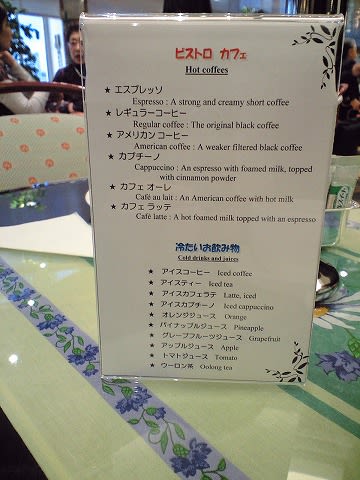 ビストロ カフェ
Hot coffees
★ エスプレッソ
Espresso : A strong and creamy short coffee
★ レギュラーコーヒー
Regular coffee : The original black coffee
★ アメリカン コーヒー
American coffee : A weaker filtered black coffee
★ カプチーノ
Cappuccino : An espresso with foamed milk, topped
with cinnamon powder
★ カフェ オーレ
Café au lait : An American coffee with hot milk
★ カフェ ラッテ
Café latte : A hot foamed milk topped with an espresso
冷たいお飲み物
Cold drinks and juices
★ アイスコーヒー Iced coffee
★ アイスティー Iced tea
★ アイスカフェラテ Latte, iced
★ アイスカプチーノ Iced cappuccino
★ オレンジジュース Orange
★ パイナップルジュース Pineapple
★ グレープフルーツジュース Grapefruit
★ アップルジュース Apple
★ トマトジュース Tomato
★ ウーロン茶 Oolong tea